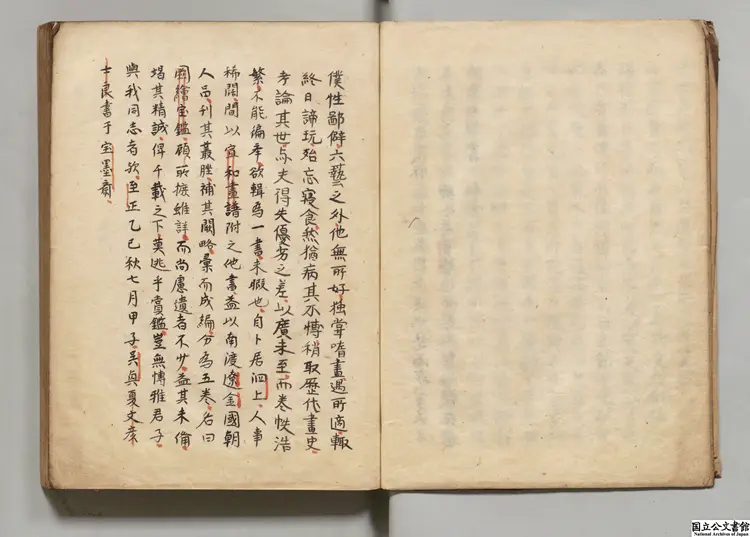 僕性鄙僻六藝之外他無所好独嘗嗜畫遇所適輙
終日諦玩殆忘寝食然猶病其不愽稍取歴代畫史
考論其世与夫得失優劣之差以廣未至而巻帙浩
繁不能徧挙欲輯為一書未暇也自卜居泗上人事
稀闊間以宣和畫譜附之他書益以南渡遼金國朝
人品刊其叢脞補其闕略彙而成編分為五巻名曰
圖繪宝鑑顧所摭雖詳而尚慮遺者不少益其未備
竭其精誠俾千載之下莫逃乎賞鑑豈無愽雅君子
與我同志者欤至正乙巳秋七月甲子呉興夏文彦
士良書于宝墨斎
国立公文書館
National Archives of Japan